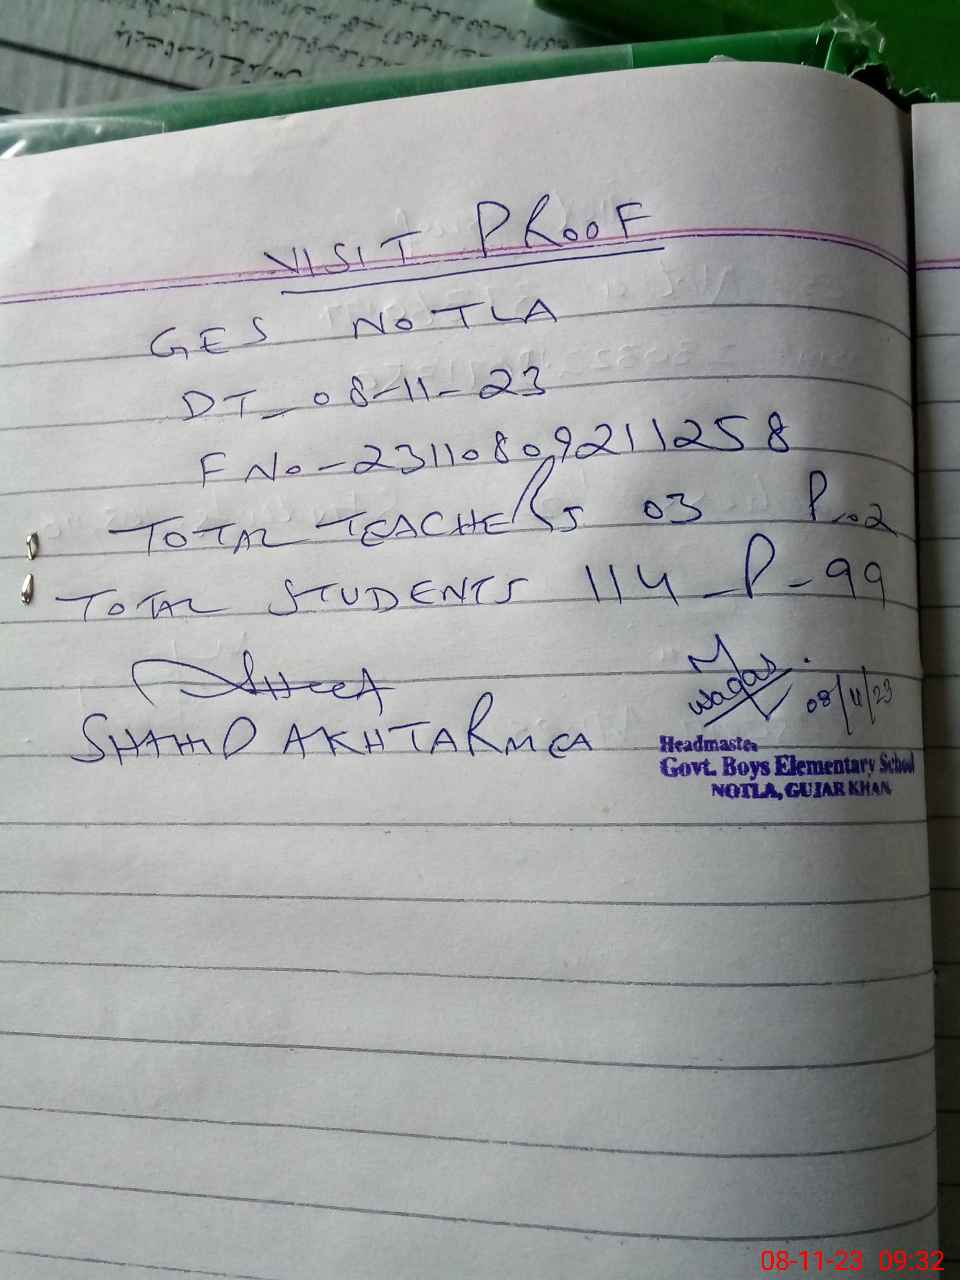 VISIT PROOF
GES NOTLA
DT_08-11-23
F No-23110809211258
TOTAL TEACHERS 03 P-02
TOTAL STUDENTS 114_P-99
SHAHID AKHTAR MEA
Waqas
08/11/23
Headmaster
Govt. Boys Elementary School
NOTLA, GUJAR KHAN
08-11-23 09:32